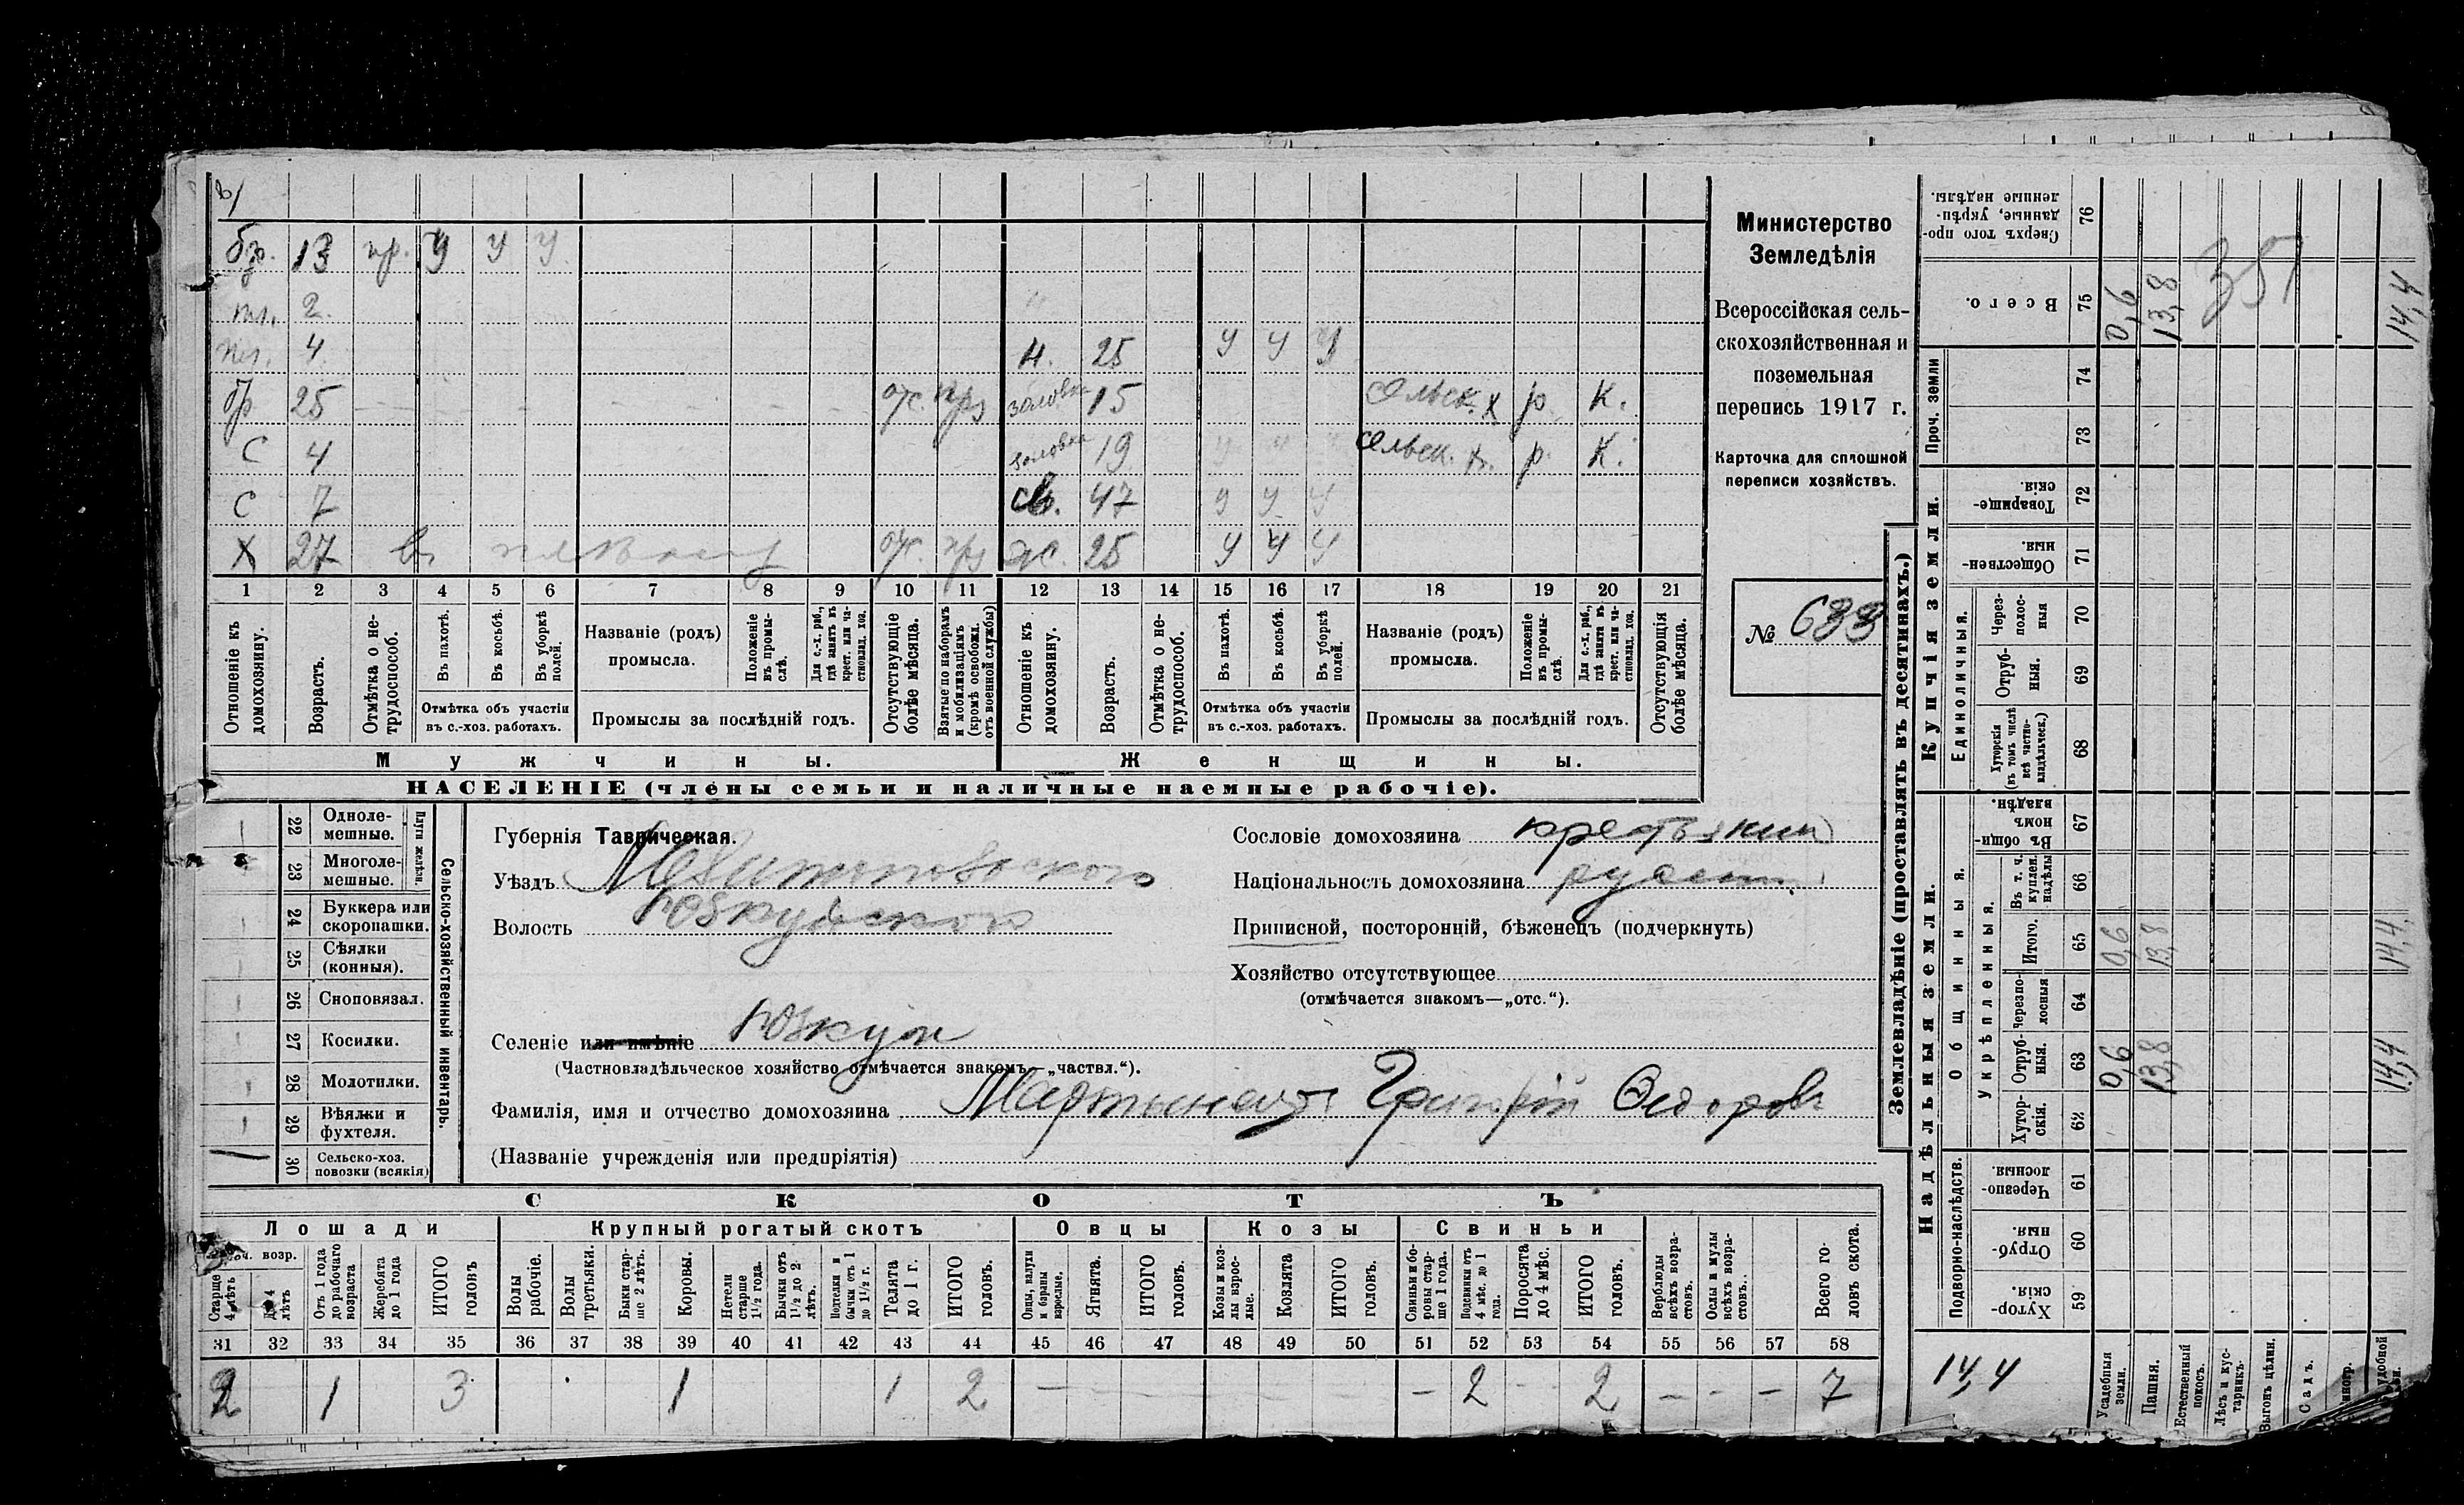 бр. 13 нр. У У У
пл. 2
пл. 4 Н. 25 У У У
бр 25 от. пр з золовка 15 сельск. х р. К.
С 4 золовка 19 У У У сельск. х. р. К.
С 7 св. 47 У У У
Х 27 в от. пр з ж. 25 У У У
1 2 3 4 5 6 7 8 9 10 11 12 13 14 15 16 17 18 19 20 21
Отношеніе къ домохозяину.
Возрастъ.
Отмѣтка о не-трудоспособ.
Въ пахотѣ.
Въ косьбѣ.
Въ уборкѣ полей.
Отмѣтка объ участіи въ с.-хоз. работахъ.
Названіе (родъ) промысла.
Положеніе въ промы-слѣ.
Для с.-х. раб., гдѣ занятъ въ крест. или ча-стновлад. хоз.
Промыслы за послѣдній годъ.
Отсутствующіе болѣе мѣсяца.
Взятые по наборамъ и мобилизаціямъ (кромѣ освобожд. отъ военной службы)
Отношеніе къ домохозяину.
Возрастъ.
Отмѣтка о не-трудоспособ.
Въ пахотѣ.
Въ косьбѣ.
Въ уборкѣ полей.
Отмѣтка объ участіи въ с.-хоз. работахъ.
Названіе (родъ) промысла.
Положеніе въ промы-слѣ.
Для с.-х. раб., гдѣ заняти въ крест. или ча-стновлад. хоз.
Промыслы за послѣдній годъ.
Отсутствующія болѣе мѣсяца.
Мужчины. Женщины.
НАСЕЛЕНІЕ (члены семьи и наличные наемные рабочіе).
Министерство
Земледѣлія
Всероссійская сель-
скохозяйственная и
поземельная
перепись 1917 г.
Карточка для сплошной
переписи хозяйствъ.
№ 633
22 Одноле-мешные.
23 Многоле-мешные.
Плуги желѣзн.
24 Буккера или скоропашки.
25 Сѣялки (конныя).
26 Сноповязал.
27 Косилки.
28 Молотилки.
29 Вѣялки и фухтеля.
30 Сельско-хоз. повозки (всякія)
Сельско-хозяйственный инвентарь.
Губернія Таврическая.
Уѣздъ Мелитопольского
Волость Юзкуйского
Селеніе или имѣніе Юзкуи
(Частновладѣльческое хозяйство отмѣчается знакомъ—„частвл.“).
Фамилія, имя и отчество домохозяина Мартыненко Григорій Ѳедоров
(Названіе учрежденія или предпріятія)
Сословіе домохозяина крестьянин
Національность домохозяина русск.
Приписной, посторонцій, бѣженецъ (подчеркнуть)
Хозяйство отсутствующее
(отмѣчается знакомъ—„отс.“).
СКОТЪ
Лошади Крупный рогатый скотъ Овцы Козы Свиньи
возр.
Старше 4 лѣтъ
До 4 лѣтъ
Отъ 1 года до рабочаго возраста
Жеребята до 1 года
ИТОГО головъ
Волы рабочіе.
Волы третьяки.
Быки стар-ше 2 лѣтъ.
Коровы.
Нетели старше 1½ года.
Бычки отъ 1½ до 2 лѣтъ.
Подтелки и бычки отъ 1 до 1½ г.
Телята до 1 г.
ИТОГО головъ.
Овцы, валухи и бараны взрослые.
Ягнята.
ИТОГО головъ.
Козы и коз-лы взрос-лые.
Козлята
ИТОГО головъ.
Свиньи и бо-ровы стар-ше 1 года.
Подсвинки отъ 4 мѣс. до 1 года.
Поросята до 4 мѣс.
ИТОГО головъ.
Верблюды всѣхъ возра-стовъ.
Ослы и мулы всѣхъ возра-стовъ.
Всего го-ловъ скота.
31 32 33 34 35 36 37 38 39 40 41 42 43 44 45 46 47 48 49 50 51 52 53 54 55 56 57 58
2 1 3 1 1 2 — — 2 — 2 — — — 7
Землевладѣніе (проставлять въ десятинахъ.)
Надѣльныя земли. Купчія земли.
Подворно-наслѣдств.
Общинныя.
Укрѣпленныя.
Единоличныя.
Проч. земли
Хутор-скія. 59
Отруб-ныя. 60
Черезпо-лосныя. 61
Хутор-скія. 62
Отруб-ныя. 63
Черезпо-лосныя 64
Итого. 65
Въ т. ч. куплен. надѣлы 66
Въ общи-номъ владѣн. 67
Хуторскія (въ томъ числѣ всѣ частно-владѣльческ.) 68
Отруб-ныя. 69
Через-полос-ныя 70
Обществен-ныя. 71
Товарище-скія. 72
73
74
Всего. 75
Сверхъ того про-данные, укрѣп-ленные надѣлы. 76
14,4
Усадебныя земли. 0,6 0,6 0,6
Пашня. 13,8 13,8 13,8
Естественный покосъ.
Лѣсъ и кус-тарникъ.
Выгонъ цѣлин.
Садъ.
14,4 14,4 14,4
351